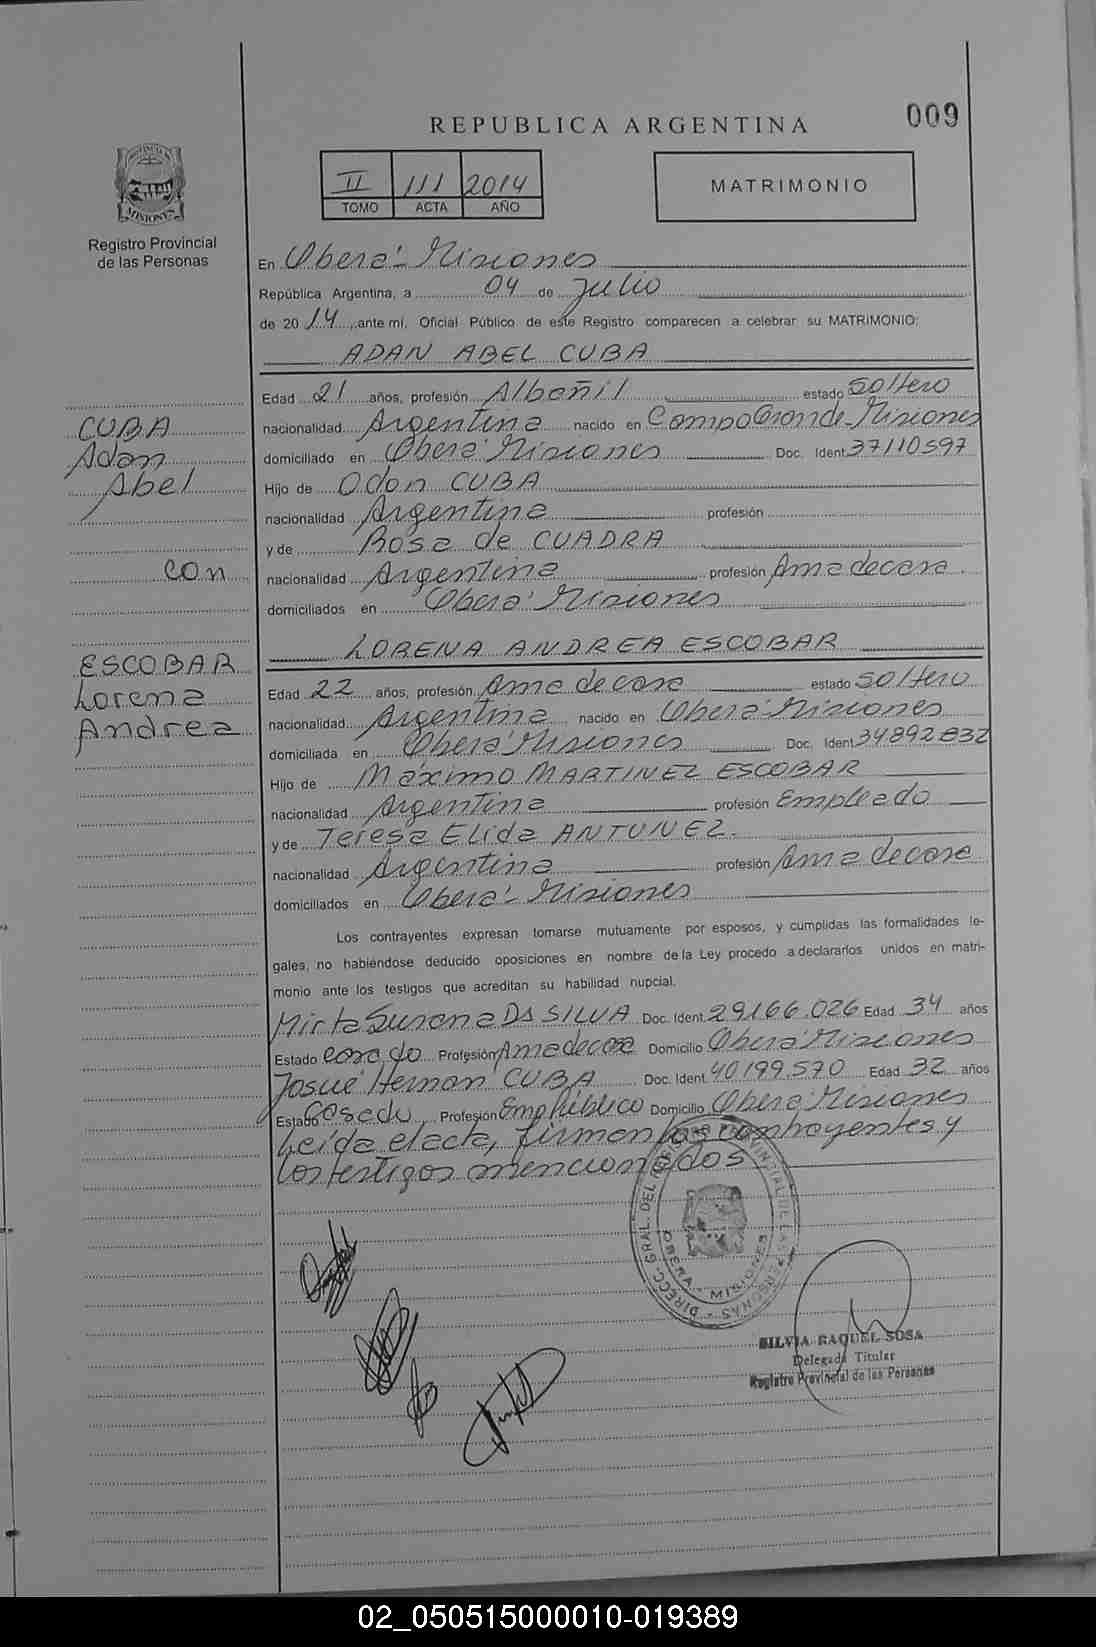 009
REPUBLICA ARGENTINA
PROVINCIA DE MISIONES
Registro Provincial
de las Personas
II 111 2014
TOMO ACTA AÑO
MATRIMONIO
En Oberá - Misiones
República Argentina, a 04 de Julio
de 2014, ante mí, Oficial Público de este Registro comparecen a celebrar su MATRIMONIO:
ADAN ABEL CUBA
CUBA
Adan
Abel
con
ESCOBAR
Lorena
Andrea
Edad 21 años, profesión Albañil estado soltero
nacionalidad Argentina nacido en Campo Grande-Misiones
domiciliado en Oberá Misiones Doc. Ident 37110597
Hijo de Odon CUBA
nacionalidad Argentina profesión
y de Rosa de CUADRA
nacionalidad Argentina profesión Ama de casa
domiciliados en Oberá Misiones
LORENA ANDREA ESCOBAR
Edad 22 años, profesión Ama de casa estado soltero
nacionalidad Argentina nacido en Oberá Misiones
domiciliada en Oberá Misiones Doc. Ident 34892832
Hijo de Máximo MARTINEZ ESCOBAR
nacionalidad Argentina profesión Empleado
y de Teresa Elida ANTUNEZ.
nacionalidad Argentina profesión Ama de casa
domiciliados en Oberá - Misiones
Los contrayentes expresan tomarse mutuamente por esposos, y cumplidas las formalidades le-
gales, no habiéndose deducido oposiciones en nombre de la Ley procedo a declararlos unidos en matri-
monio ante los testigos que acreditan su habilidad nupcial.
Mirta Susana DA SILVA Doc. Ident. 29.166.026 Edad 34 años
Estado casado Profesión Ama de casa Domicilio Oberá Misiones
Josué Hernan CUBA Doc. Ident. 40199.570 Edad 32 años
Estado Casado Profesión Emp Público Domicilio Oberá Misiones
Leída el acta, firman los contrayentes y
los testigos mencionados
DIRECC. GRAL. DEL REGISTRO PROVINCIAL DE LAS PERSONAS
OBERA - MISIONES
SILVIA RAQUEL SOSA
Delegada Titular
Registro Provincial de las Personas
02_050515000010-019389